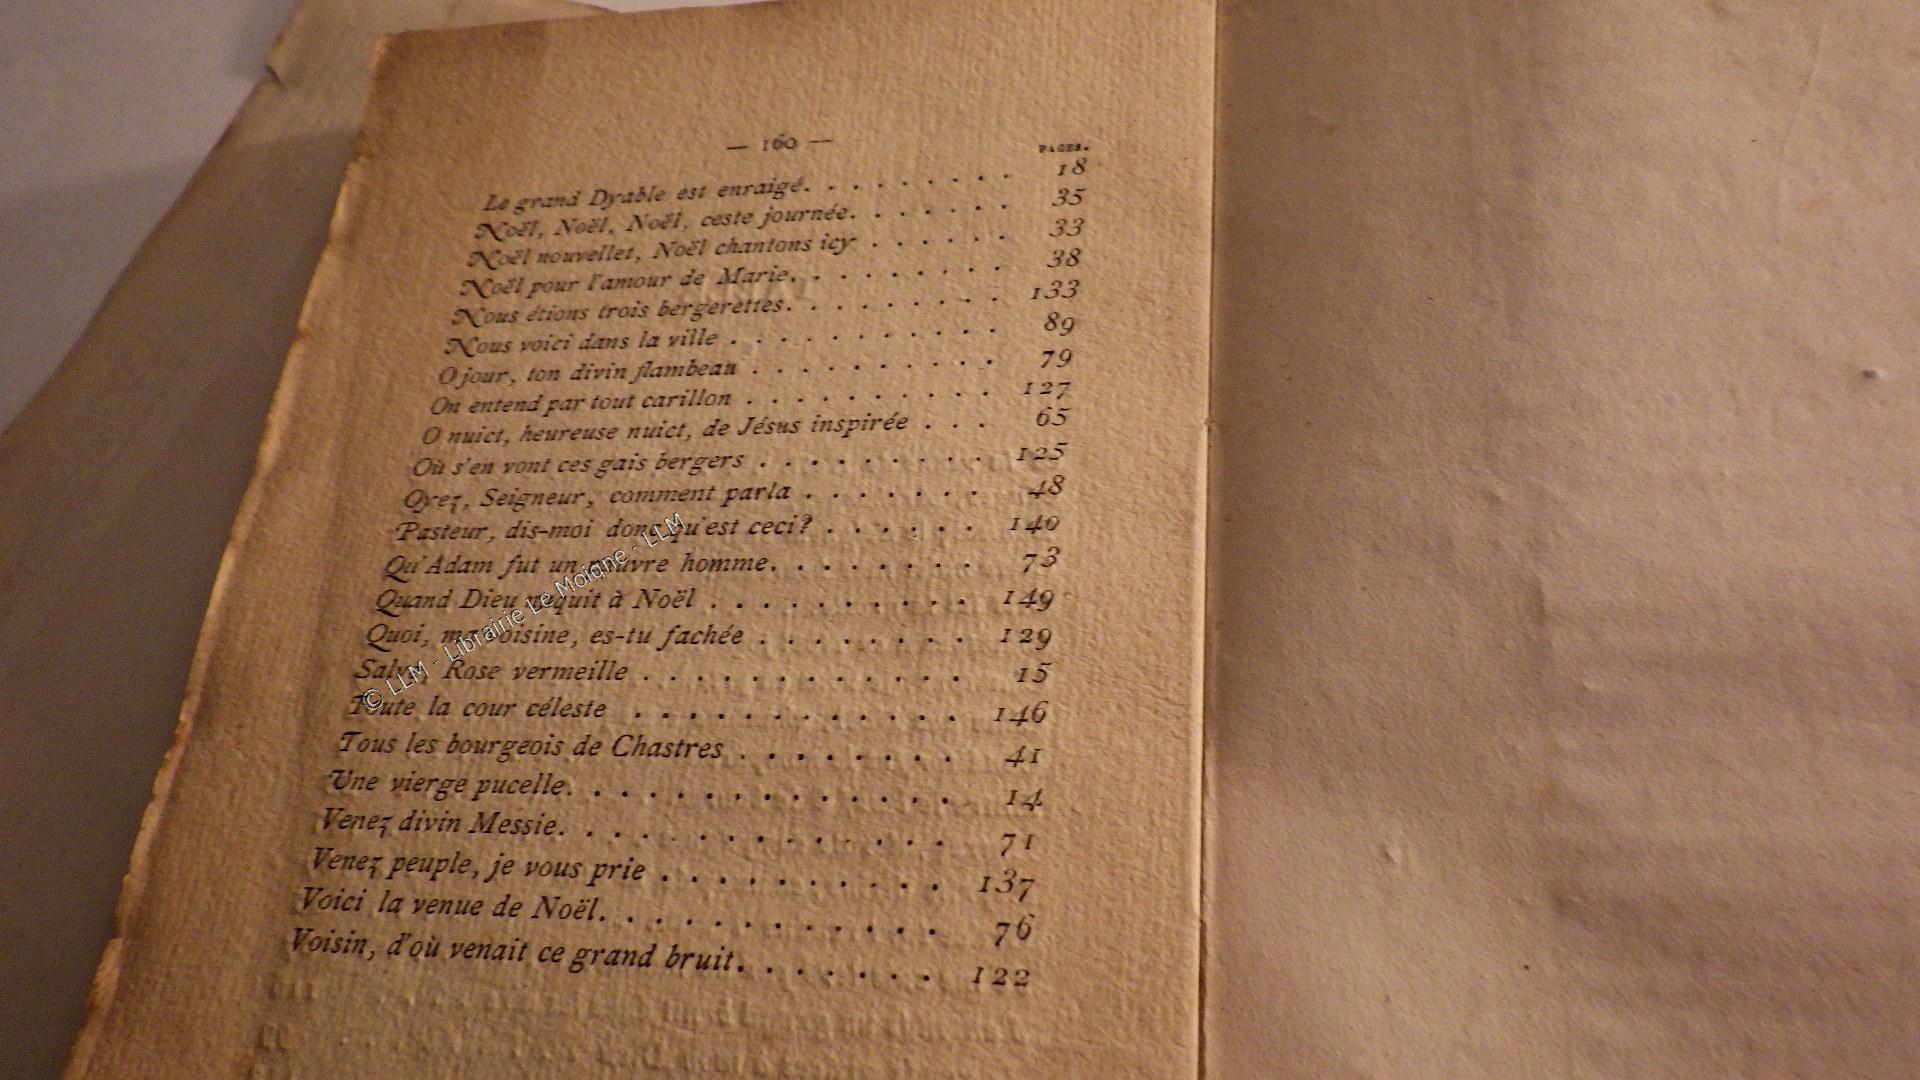 — 160 —
PAGES.
Le grand Dyable est enraigé. . . . . . . . . 18
Noël, Noël, Noël, ceste journée. . . . . . . 35
Noël nouvellet, Noël chantons icy . . . . . . 33
Noël pour l'amour de Marie. . . . . . . . . 38
Nous étions trois bergerettes. . . . . . . . . 133
Nous voici dans la ville . . . . . . . . . . . 89
O jour, ton divin flambeau . . . . . . . . . . 79
On entend par tout carillon . . . . . . . . . . 127
O nuict, heureuse nuict, de Jésus inspirée . . . 65
Où s'en vont ces gais bergers . . . . . . . . . 125
Oyez, Seigneur, comment parla . . . . . . . 48
Pasteur, dis-moi donc qu'est ceci? . . . . . . 140
Qu'Adam fut un pauvre homme. . . . . . . . 73
Quand Dieu naquit à Noël . . . . . . . . . . 149
Quoi, ma voisine, es-tu fachée . . . . . . . . 129
Salve, Rose vermeille . . . . . . . . . . . . 15
Toute la cour céleste . . . . . . . . . . . . 146
Tous les bourgeois de Chastres . . . . . . . . 41
Une vierge pucelle. . . . . . . . . . . . . . 14
Venez divin Messie. . . . . . . . . . . . . . 71
Venez peuple, je vous prie . . . . . . . . . . 137
Voici la venue de Noël. . . . . . . . . . . . 76
Voisin, d'où venait ce grand bruit. . . . . . . 122
© LLM - Librairie Le Moiane - LLM